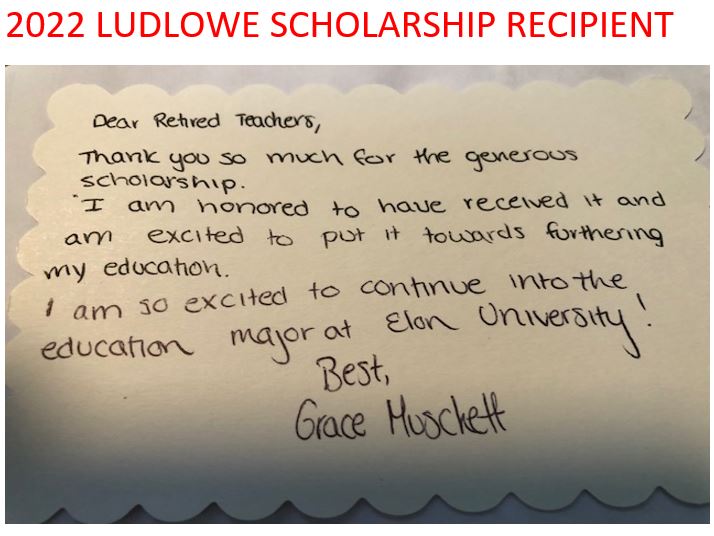 2022 LUDLOWE SCHOLARSHIP RECIPIENT
Dear Retired Teachers,
Thank you so much for the generous
scholarship.
I am honored to have received it and
am excited to put it towards furthering
my education.
I am so excited to continue into the
education major at Elon University!
Best,
Grace Musckett